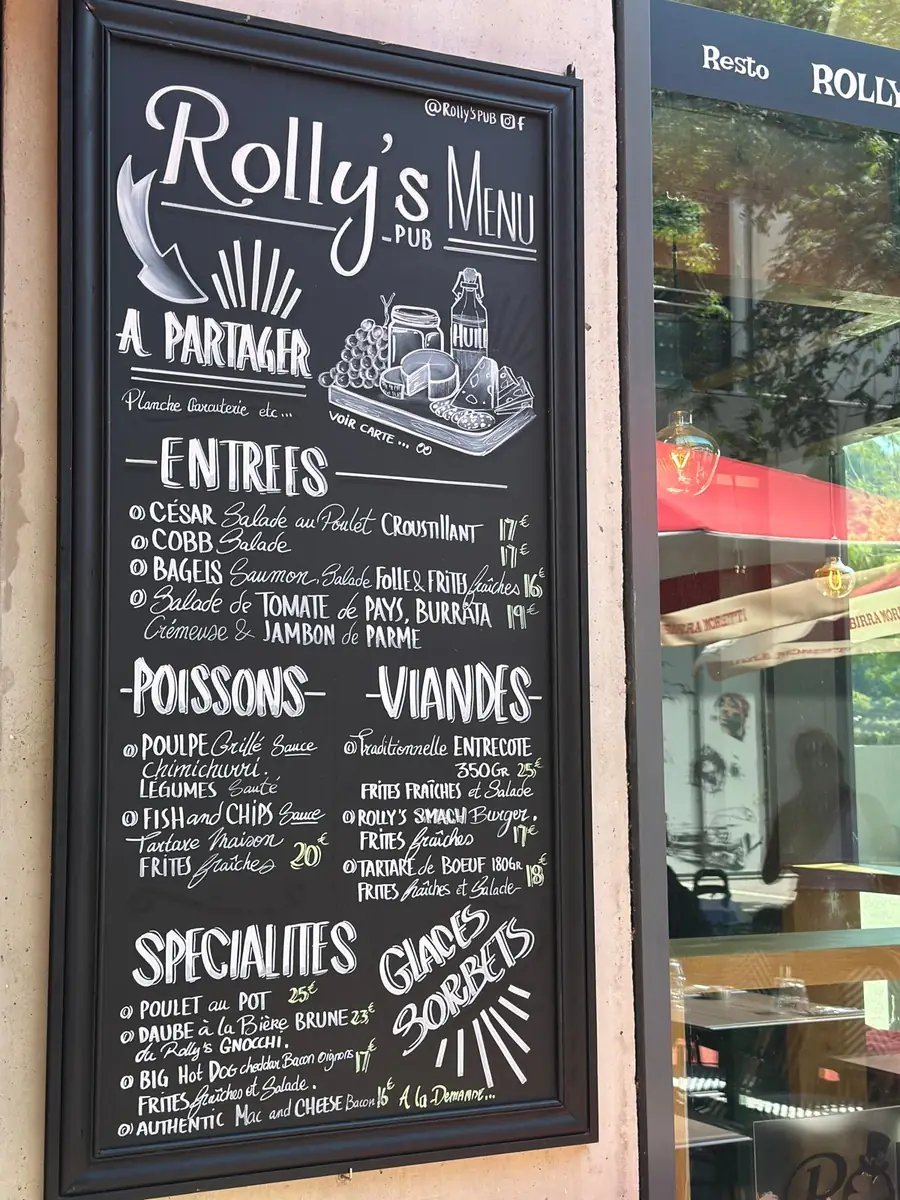 @Rolly's PUB
Rolly's
-PUB
MENU
A PARTAGER
Planche Carcuterie etc...
HUIL
VOIR CARTE ...
-ENTREES
CÉSAR Salade au Poulet CROUSTILLANT 17€
COBB Salade 17€
BAGELS Saumon, Salade FOLLE & FRITES fraîches 16€
Salade de TOMATE de PAYS, BURRATA 19€
Crémeuse & JAMBON de PARME
-POISSONS-
POULPE Grillé Sauce
Chimichurri.
LÉGUMES Sauté
FISH and CHIPS Sauce
Tartare Maison
FRITES fraîches 20€
-VIANDES-
Traditionnelle ENTRECOTE
350Gr 25€
FRITES FRAÎCHES et Salade
ROLLY'S SMACH Burger.
FRITES fraîches 17€
TARTARE de BOEUF 180GR 18€
FRITES fraîches et Salade
SPECIALITES
POULET au POT 25€
DAUBE à la Bière BRUNE 23€
du Rolly's GNOCCHI.
BIG Hot DOG cheddar Bacon oignons 17€
FRITES fraîches et Salade.
AUTHENTIC Mac and CHEESE Bacon 16€
GLACES
SORBETS
A la Demande...
Resto
ROLLY
BIRRA MORETTI
BIRRA MOR